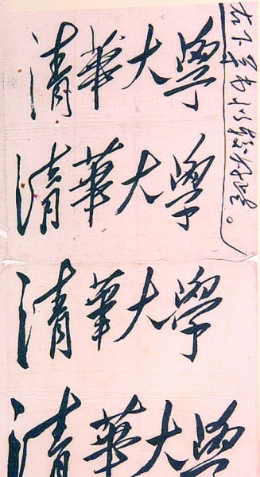 清華大學
清華大學
清華大學
清華大學